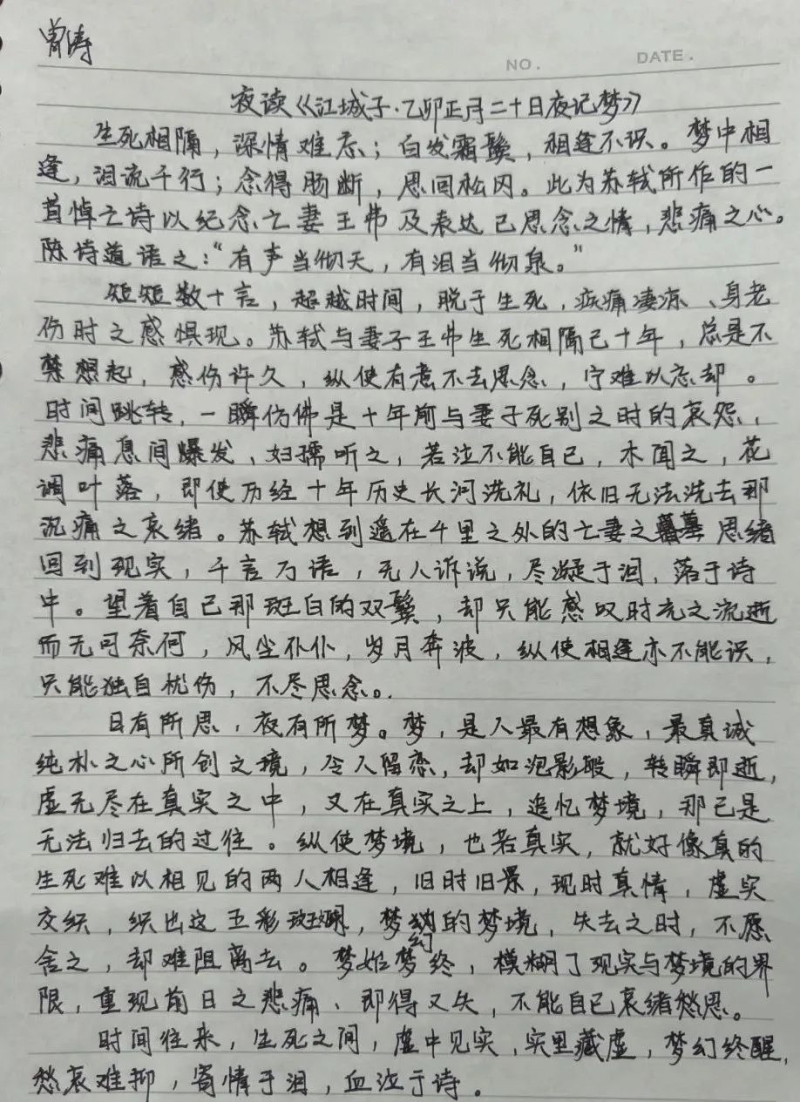 曾涛
NO. DATE.
夜读《江城子·乙卯正月二十日夜记梦》
生死相隔，深情难忘；白发霜鬓，相逢不识。梦中相
逢，泪流千行；念得肠断，思回松冈。此为苏轼所作的一
首悼亡诗以纪念亡妻王弗及表达己思念之情，悲痛之心。
陈诗道语之："有声当彻天，有泪当彻泉。"
短短数十言，超越时间，脱于生死，疾痛凄凉、身老
伤时之感俱现。苏轼与妻子王弗生死相隔已十年，总是不
禁想起，感伤许久，纵使有意不去思念，宁难以忘却。
时间跳转，一瞬仿佛是十年前与妻子死别之时的哀怨、
悲痛息间爆发，妇孺听之，若泣不能自已，木闻之，花
凋叶落，即使历经十年历史长河洗礼，依旧无法洗去那
沉痛之哀绪。苏轼想到遥在千里之外的亡妻之墓 思绪
回到现实，千言万语，无人诉说，尽凝于泪，落于诗
中。望着自己那斑白的双鬓，却只能感叹时光之流逝
而无可奈何，风尘仆仆，岁月奔波，纵使相逢亦不能识，
只能独自忧伤，不尽思念。
日有所思，夜有所梦。梦，是人最有想象，最真诚
纯朴之心所创之境，令人留恋，却如泡影般，转瞬即逝，
虚无尽在真实之中，又在真实之上，追忆梦境，那已是
无法归去的过往。纵使梦境，也若真实，就好像真的
生死难以相见的两人相逢，旧时旧景，现时真情，虚实
交织，织出这五彩斑斓，梦幻的梦境，失去之时，不愿
舍之，却难阻离去。梦始梦终，模糊了现实与梦境的界
限，重现前日之悲痛、即得又失，不能自已哀绪愁思。
时间往来，生死之间，虚中见实，实里藏虚，梦幻终醒，
愁哀难抑，寄情于泪，血泣于诗。